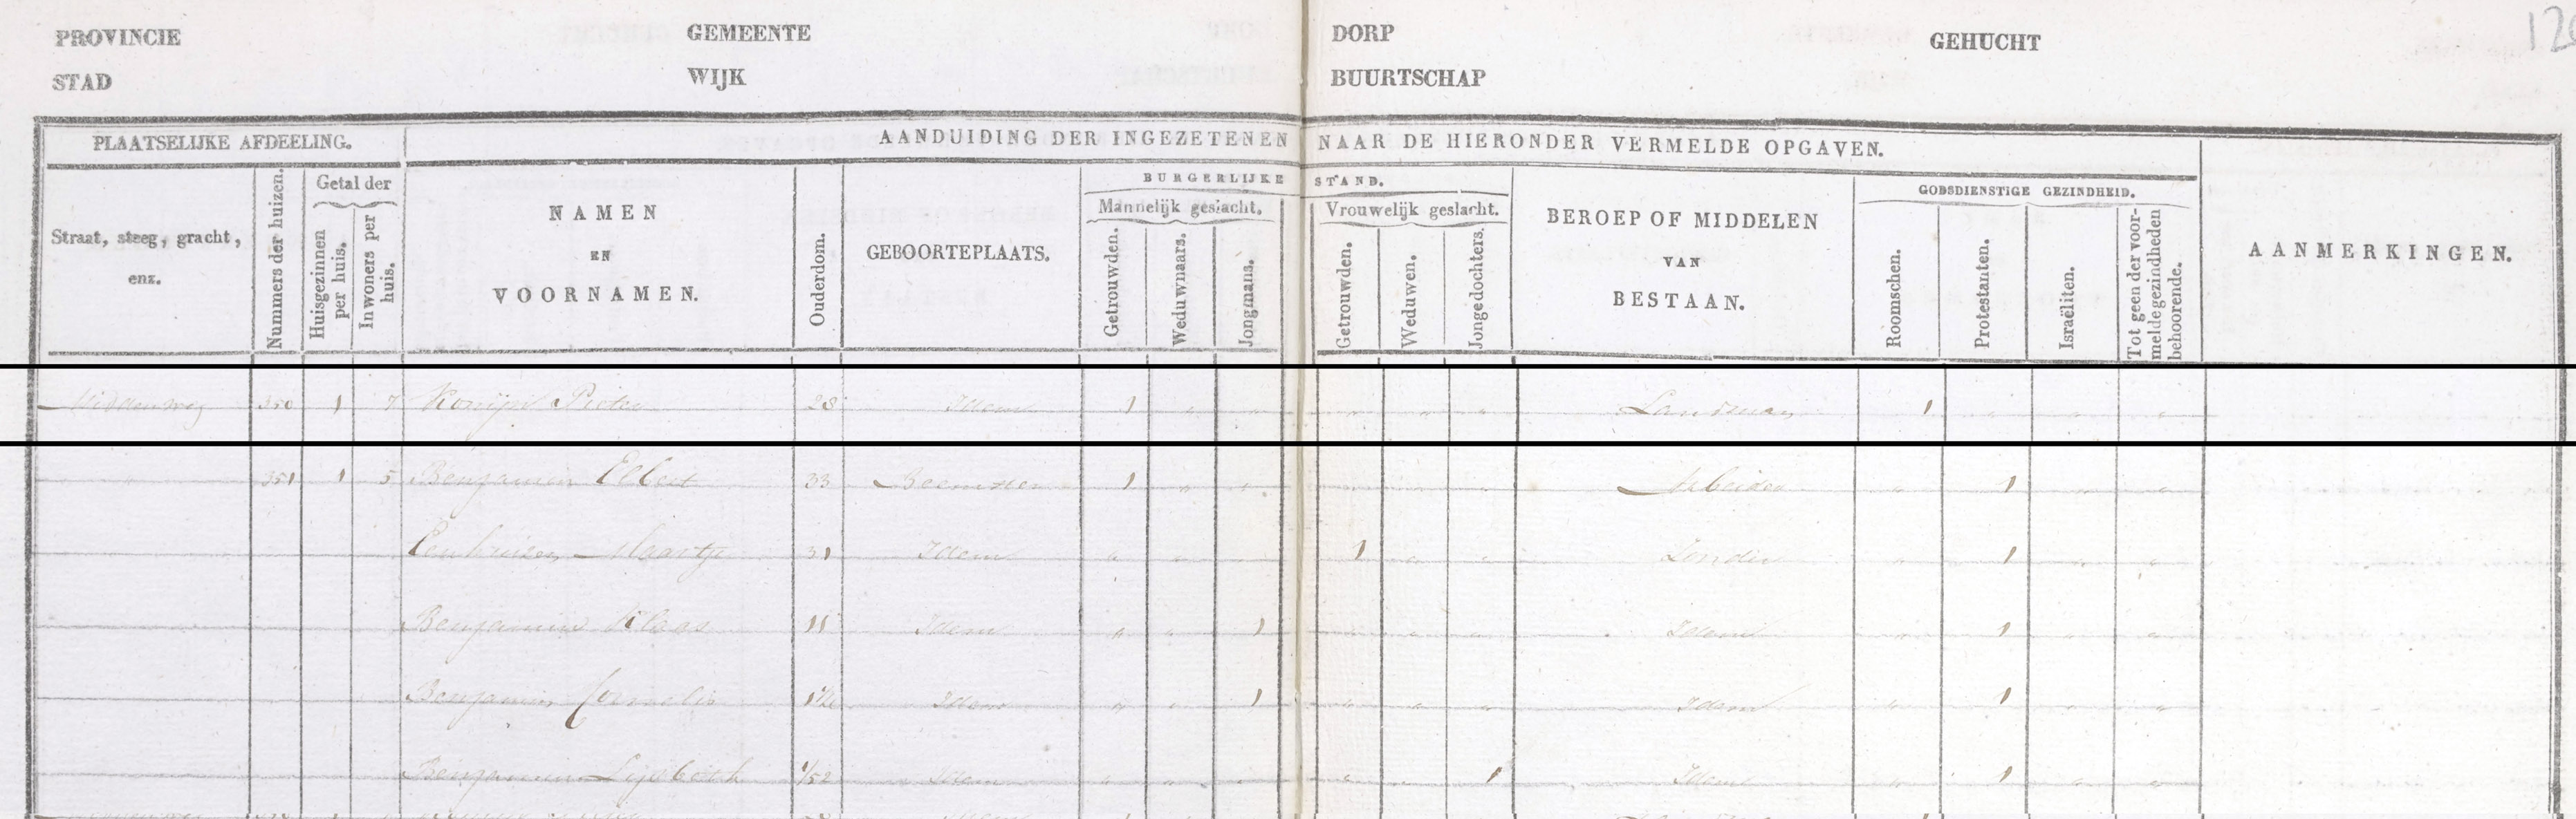 120
PROVINCIE GEMEENTE DORP GEHUCHT
STAD WIJK BUURTSCHAP
PLAATSELIJKE AFDEELING. AANDUIDING DER INGEZETENEN NAAR DE HIERONDER VERMELDE OPGAVEN.
Straat, steeg, gracht, enz.
Nummers der huizen.
Getal der
Huisgezinnen per huis.
Inwoners per huis.
NAMEN
EN
VOORNAMEN.
Ouderdom.
GEBOORTEPLAATS.
BURGERLIJKE STAND.
Mannelijk geslacht.
Getrouwden.
Weduwnaars.
Jongmans.
Vrouwelijk geslacht.
Getrouwden.
Weduwen.
Jongedochters.
BEROEP OF MIDDELEN
VAN
BESTAAN.
GODSDIENSTIGE GEZINDHEID.
Roomschen.
Protestanten.
Israëliten.
Tot geen der voormelde gezindheden behoorende.
AANMERKINGEN.
Middenweg 350 1 7 Konijn Pieter 28 Idem 1 " " " " " Landman 1 " " "
" 351 1 5 Benjamin Elbert 33 Beemster 1 " " Arbeider " 1 " "
Eenhuizen Maartje 31 Idem " " 1 " " Zonder " 1 " "
Benjamin Klaas 11 Idem " " 1 " " " Idem " 1 " "
Benjamin Cornelis 1½ Idem " " 1 " " " Idem " 1 " "
Benjamin Lijsbeth 1/52 Idem " " " 1 Idem " 1 " "